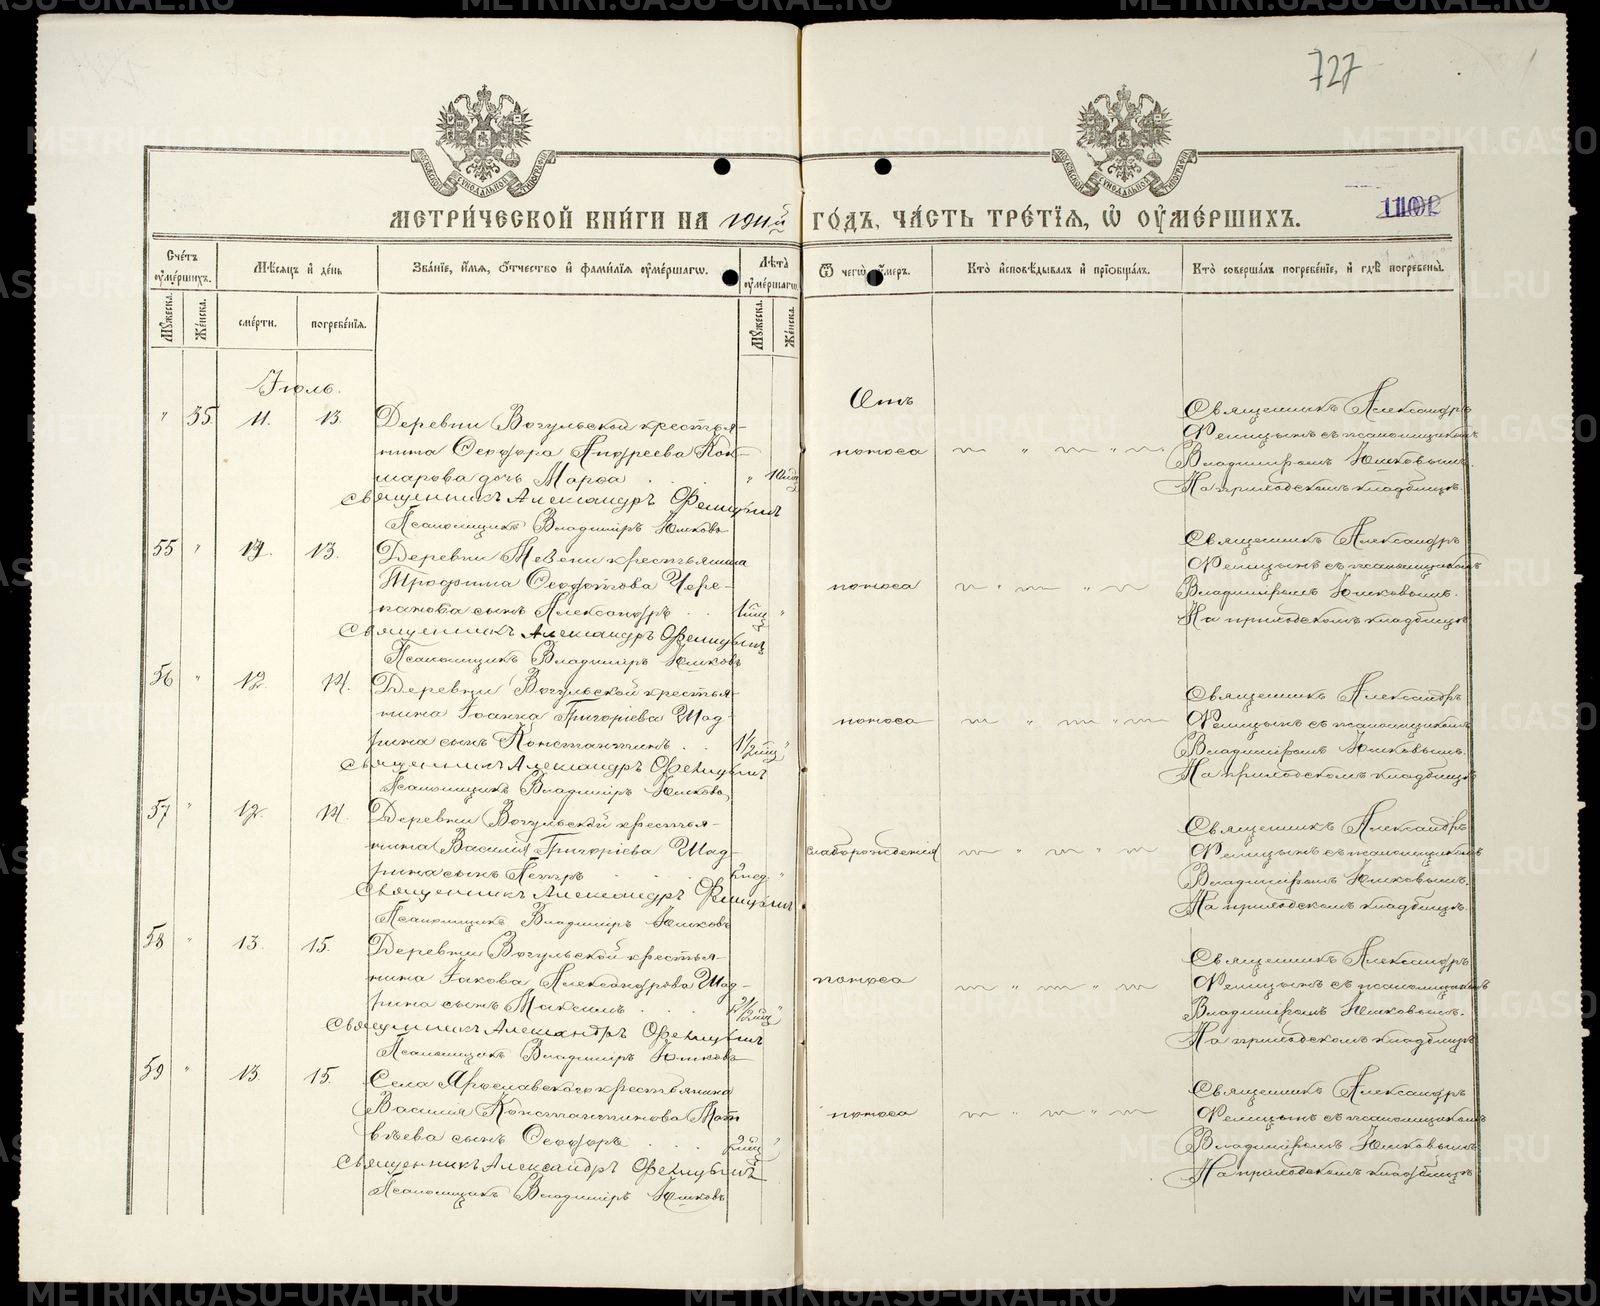 727
МЕТРИ́ЧЕСКОЙ КНИ́ГИ НА 1911й ГО́ДЪ, ЧА́СТЬ ТРЕ́ТІѦ, Ѡ ОУ҆МЕ́РШИХЪ.
Сче́тъ оу҆ме́ршихъ.
Мѣ́сѧцъ и҆ де́нь
Зва́нїе, и҆́мѧ, ѻ҆́тчество и҆ фами́лїѧ оу҆ме́ршагѡ.
Лѣ́та оу҆ме́ршагѡ.
Ѿ чегѡ̀ оу҆́меръ.
Кто̀ и҆сповѣ́дывалъ и҆ прїѡбща́лъ.
Кто̀ соверша́лъ погребе́нїе, и҆ гдѣ̀ погребены̀.
Мꙋ́жеска.
Же́нска.
сме́рти.
погребе́нїѧ.
Мꙋ́жеска.
Же́нска.
Іюль.
Отъ
" 35. 11. 13. Деревни Вогульской крестья-
нина Ѳеодора Андреева Кок-
шарова дочь Марѳа . . . " 10 мц
Священникъ Александръ Фелицынъ
Псаломщикъ Владиміръ Юшковъ
поноса
Священникъ Александръ
Фелицынъ съ псаломщикомъ
Владиміромъ Юшковымъ.
На приходскомъ кладбищѣ.
55 " 12. 13. Деревни крестьянина
Трофима Ѳедотова Чере-
панова сынъ Александръ . . 1 мц "
Священникъ Александръ Фелицынъ
Псаломщикъ Владиміръ Юшковъ
поноса
Священникъ Александръ
Фелицынъ съ псаломщикомъ
Владиміромъ Юшковымъ.
На приходскомъ кладбищѣ
56 " 12. 14. Деревни Вогульской крестья-
нина Іоанна Григоріева Шад-
рина сынъ Константинъ . . 1 1/2 мц "
Священникъ Александръ Фелицынъ
Псаломщикъ Владиміръ Юшковъ
поноса
Священникъ Александръ
Фелицынъ съ псаломщикомъ
Владиміромъ Юшковымъ.
На приходскомъ кладбищѣ
57 " 12. 14. Деревни Вогульской крестья-
нина Василія Григоріева Шад-
рина сынъ Петръ . . . 2 нед. "
Священникъ Александръ Фелицынъ
Псаломщикъ Владиміръ Юшковъ
слаборожденія
Священникъ Александръ
Фелицынъ съ псаломщикомъ
Владиміромъ Юшковымъ.
На приходскомъ кладбищѣ.
58 " 13. 15. Деревни Вогульской крестья-
нина Іакова Александрова Шад-
рина сынъ Максимъ . . . 2 1/2 мц "
Священникъ Александръ Фелицынъ
Псаломщикъ Владиміръ Юшковъ
поноса
Священникъ Александръ
Фелицынъ съ псаломщикомъ
Владиміромъ Юшковымъ.
На приходскомъ кладбищѣ
59 " 13. 15. Села Ярославскаго крестьянина
Василія Константинова Мат-
вѣева сынъ Ѳеодоръ . . . 2 мц "
Священникъ Александръ Фелицынъ
Псаломщикъ Владиміръ Юшковъ
поноса
Священникъ Александръ
Фелицынъ съ псаломщикомъ
Владиміромъ Юшковымъ
На приходскомъ кладбищѣ
METRIKI.GASO-URAL.RU